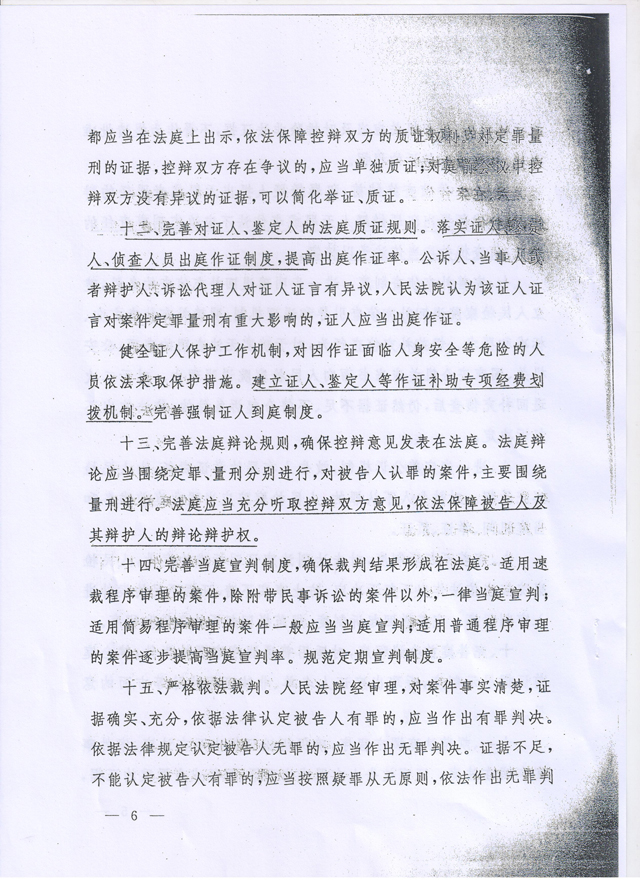 都应当在法庭上出示,依法保障控辩双方的质证权利。对定罪量
刑的证据,控辩双方存在争议的,应当单独质证;对庭 中控
辩双方没有异议的证据,可以简化举证、质证。
十二、完善对证人、鉴定人的法庭质证规则。落实证人、鉴定
人、侦查人员出庭作证制度,提高出庭作证率。公诉人、当事人或
者辩护人、诉讼代理人对证人证言有异议,人民法院认为该证人证
言对案件定罪量刑有重大影响的,证人应当出庭作证。
健全证人保护工作机制,对因作证面临人身安全等危险的人
员依法采取保护措施。建立证人、鉴定人等作证补助专项经费划
拨机制。完善强制证人到庭制度。
十三、完善法庭辩论规则,确保控辩意见发表在法庭。法庭辩
论应当围绕定罪、量刑分别进行,对被告人认罪的案件,主要围绕
量刑进行。法庭应当充分听取控辩双方意见,依法保障被告人及
其辩护人的辩论辩护权。
十四、完善当庭宣判制度,确保裁判结果形成在法庭。适用速
裁程序审理的案件,除附带民事诉讼的案件以外,一律当庭宣判;
适用简易程序审理的案件一般应当当庭宣判;适用普通程序审理
的案件逐步提高当庭宣判率。规范定期宣判制度。
十五、严格依法裁判。人民法院经审理,对案件事实清楚,证
据确实、充分,依据法律认定被告人有罪的,应当作出有罪判决。
依据法律规定认定被告人无罪的,应当作出无罪判决。证据不足,
不能认定被告人有罪的,应当按照疑罪从无原则,依法作出无罪判
— 6 —